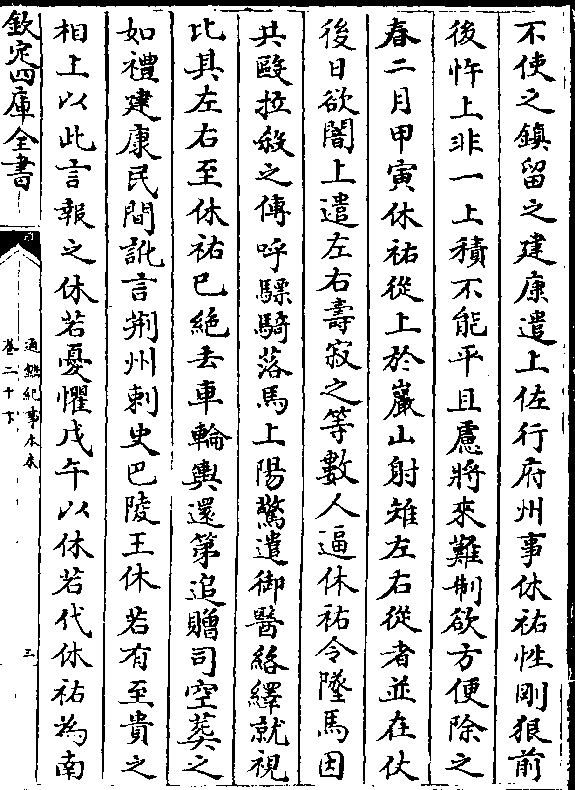 不使之鎮留之建康遣上佐行府州事休祐性剛狠前
後忤上非一上積不能平且慮將來難制欲方便除之
春二月甲寅休祐從上於巖山射雉左右從者並在仗
後日欲闇上遣左右壽寂之等數人逼休祐令墜馬因
共毆拉殺之傳呼驃騎落馬上陽驚遣御醫絡繹就視
比其左右至休祐已絕去車輪輿還第追贈司空葬之
如禮建康民間訛言荆州刺史巴陵王休若有至貴之
相上以此言報之休若憂懼戊午以休若代休祐為南
欽定四庫全書
通鑑紀事本末
卷二十下
三